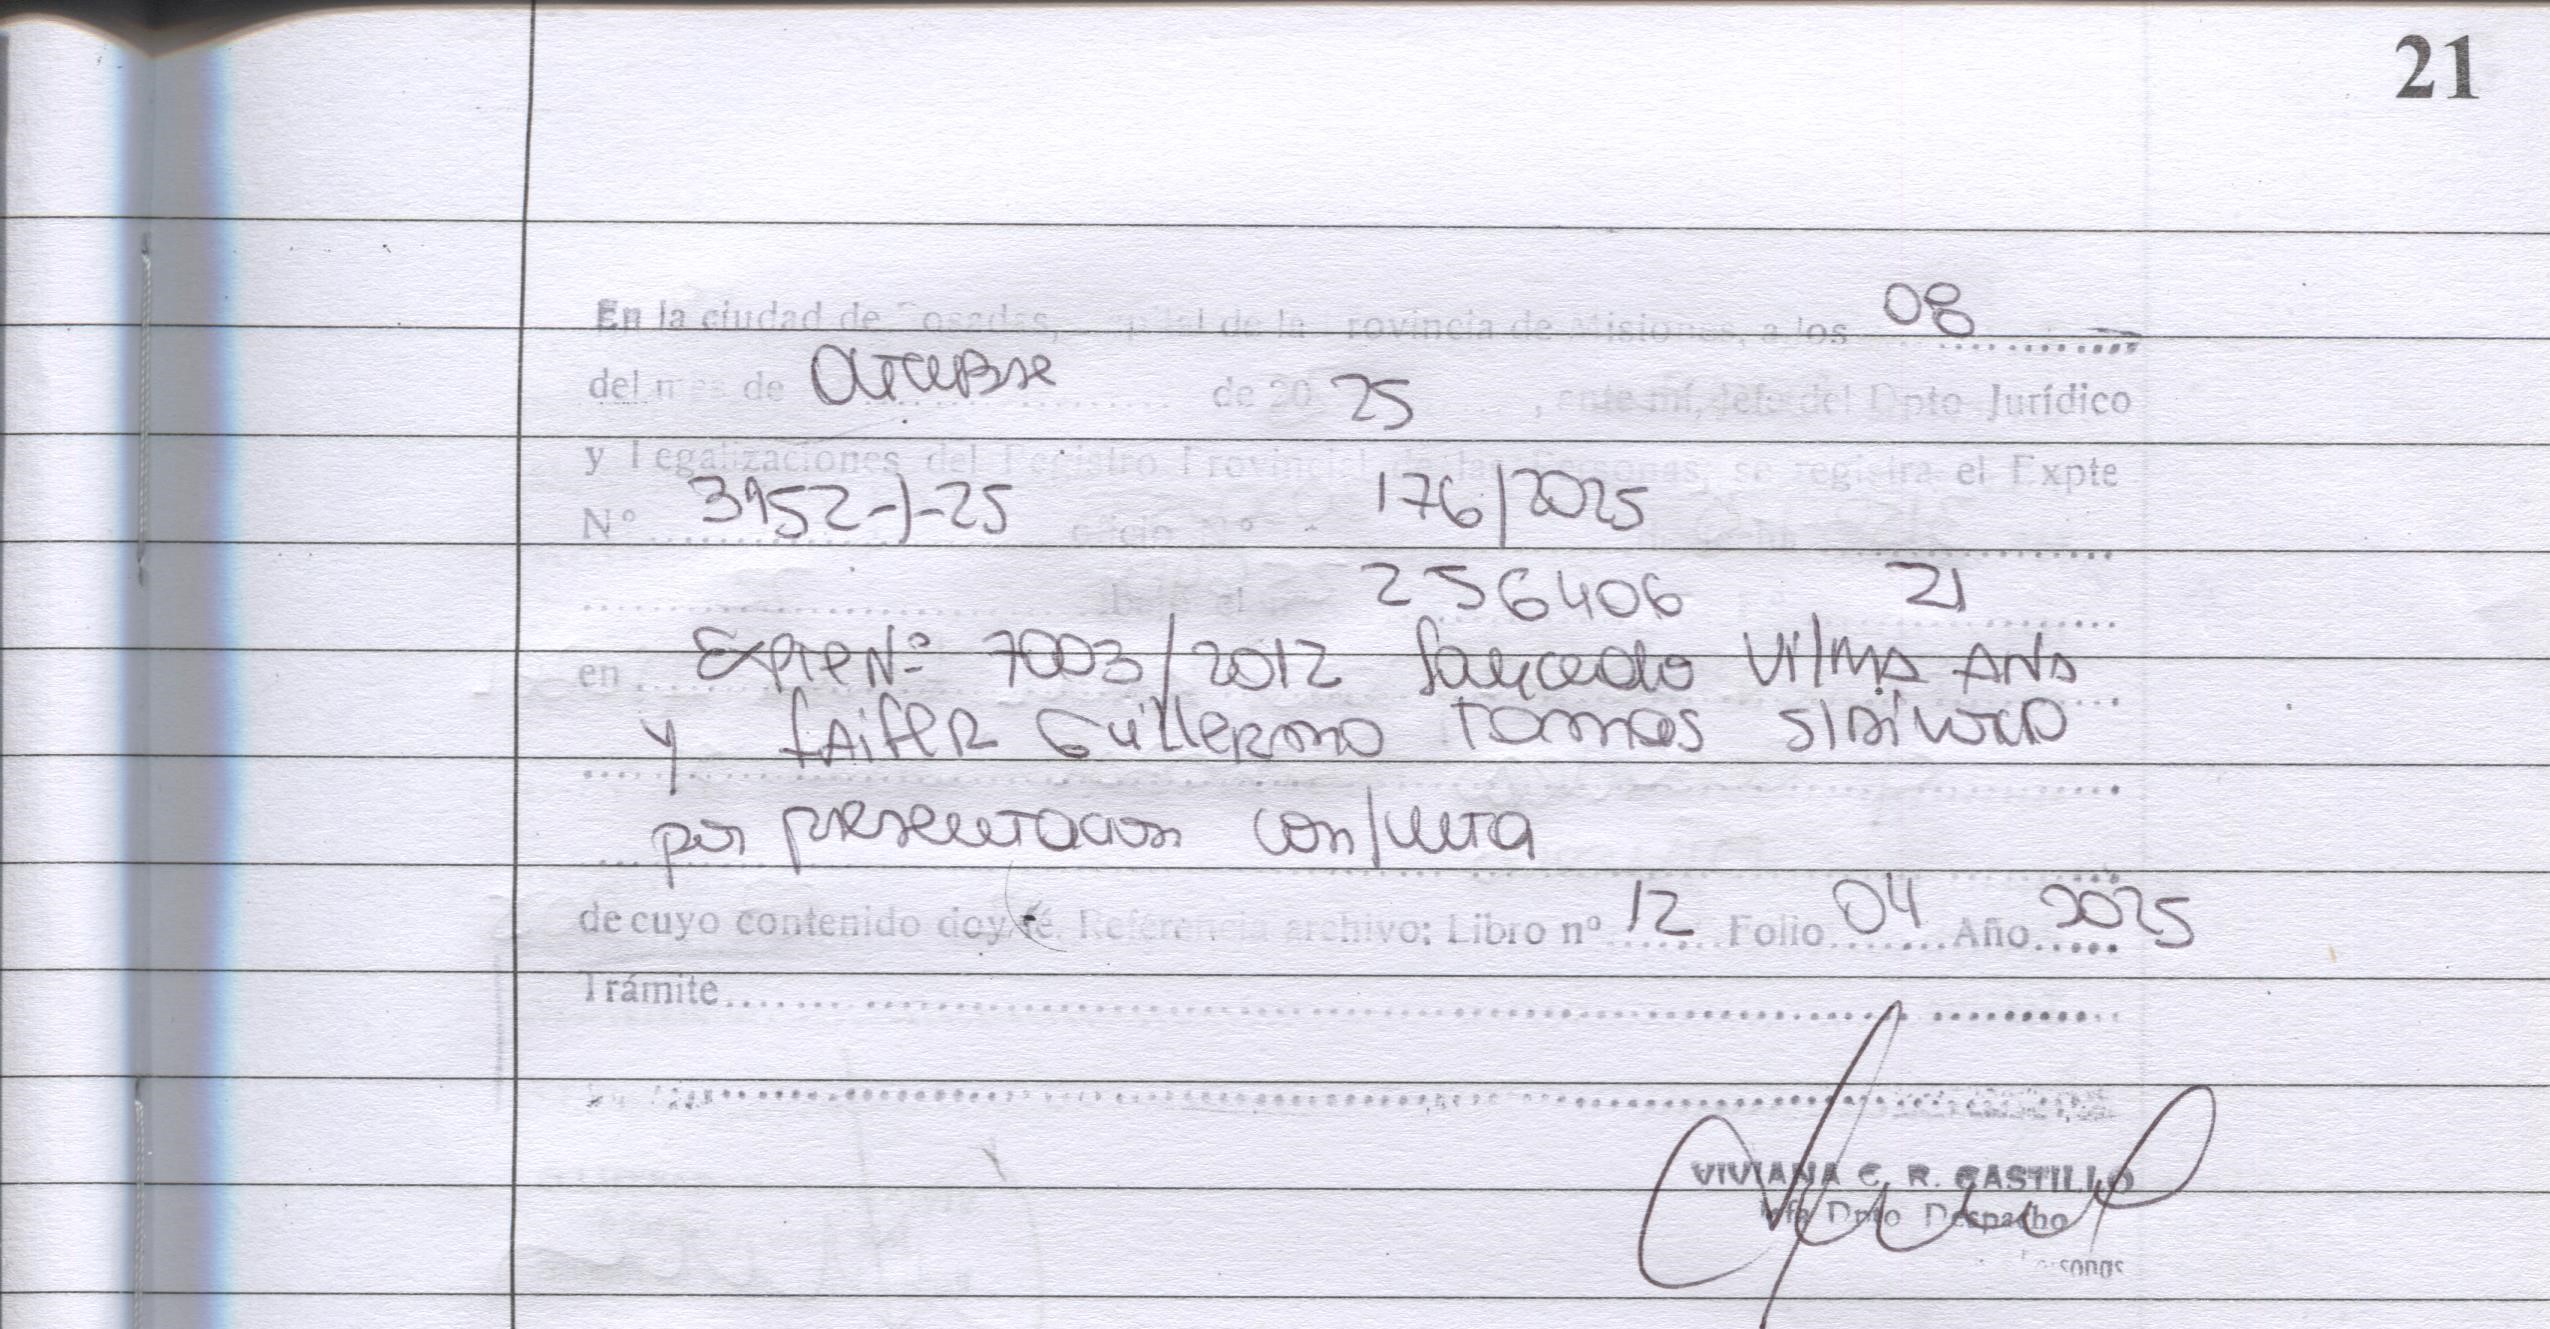 21
En la ciudad de Posadas, capital de la Provincia de Misiones, a los 08
del mes de octubre de 20 25, ante mí, Jefe del Dpto Jurídico
y Legalizaciones del Registro Provincial de las Personas, se registra el Expte
Nº 3952-J-25 oficio Nº 176/2025
256406 21
en Expte Nº 7003/2012 Saucedo Vilma Ana
y Faifer Guillermo Tomas S/Divorcio
por presentacion conjunta
de cuyo contenido doy fé. Referencia archivo: Libro nº 12 Folio 04 Año 2025
Trámite
VIVIANA C. R. CASTILLO
Jefa Dpto Despacho